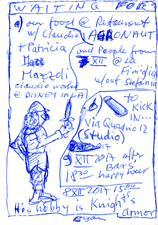 WAITING FOR
our food @ Restaurant
w/ Claudio AGRONAUT
+ Patricia
and People from
Mazzoli
7 XII @ La
Claudio works
@ DISNEY in LA!
w/out Stefania
to
kick
IN...
Via Quadrio 12
(Studio)
9 XII 2017 after
18³⁰
Bar's
happy hour
8 XII 2017 15⁰⁰
His hobby is Knight's
armor